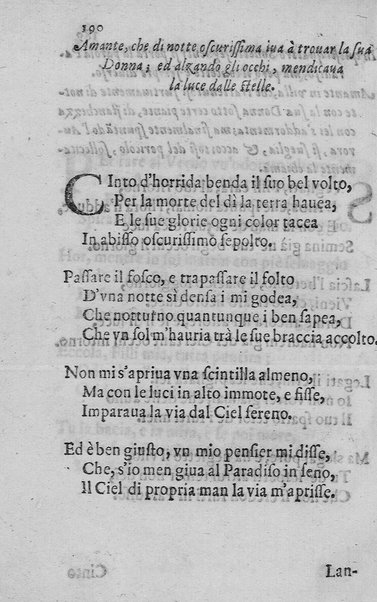 190
Amante, che di notte oscurissima iua à trouar la sua
Donna; ed alzando gli occhi, mendicaua
la luce dalle stelle.
CInto d'horrida benda il suo bel volto,
Per la morte del dì la terra hauea,
E le sue glorie ogni color tacea
In abisso oscurissimo sepolto.
Passare il fosco, e trapassare il folto
D'vna notte sì densa i mi godea,
Che notturno quantunque i ben sapea,
Che vn sol m'hauria trà le sue braccia accolto.
Non mi s'apriua vna scintilla almeno,
Ma con le luci in alto immote, e fisse,
Imparaua la via dal Ciel sereno.
Ed è ben giusto, vn mio pensier mi disse,
Che, s'io men giua al Paradiso in seno,
Il Ciel di propria man la via m'aprisse.
Lan-